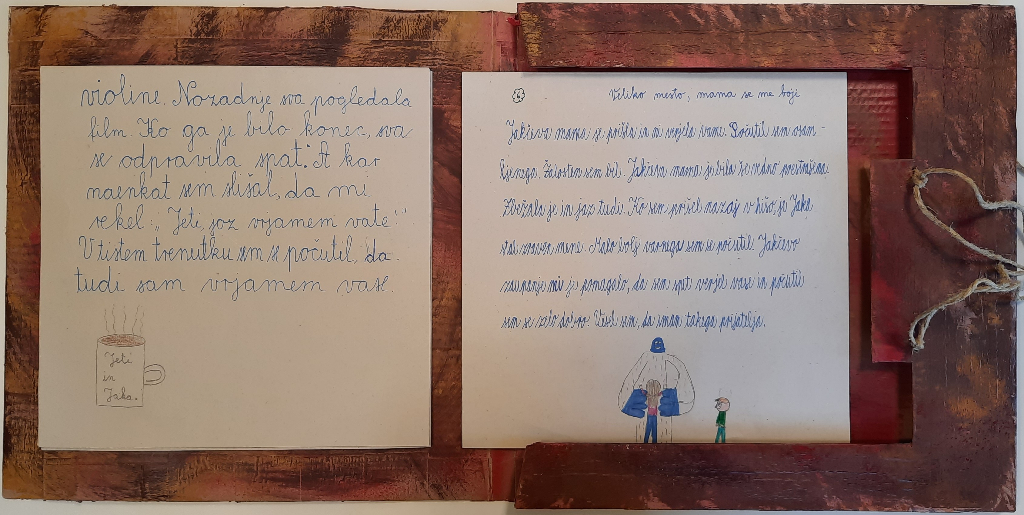 violine. Nozadnje sva pogledala
film. Ko ga je bilo konec, sva
se odpravila spat. A kar
naenkat sem slišal, da mi
rekel: „Jeti, joz vrjamem vate“
V tistem trenutku sem se počutil, da
tudi sam vrjamem vase.
Jeti
in
Jaka.
Veliko mesto, mama se me boji
Jakčeva mama je prišla in ni verjela vame. Počutil sem osam-
ljenega. Žalosten sem bil. Jakčeva mama je bila še vedno prestrašena.
Zbežala je in jaz tudi. Ko sem prišel nazaj v hišo, je Jaka
stal zraven mene. Malo bolj varnega sem se počutil. Jakčevo
zaupanje mi je pomagalo, da sem spet verjel vase in počutil
sem se zelo dobro. Vesel sem, da imam takega prijatelja.